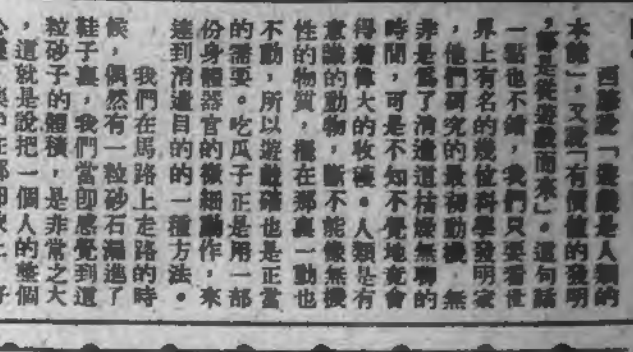 西諺說「遊戲是人類的
本能」，又說「有價值的發明
，都是從遊戲而來」。這句話
一點也不錯，我們只要看世
界上有名的幾位科學發明家
，他們研究的最初動機，無
非是爲了消遣這枯燥無聊的
時間，可是不知不覺地竟會
得着偉大的收穫。人類是有
意識的動物，斷不能像無機
性的物質，擺在那裏一動也
不動，所以遊戲確也是正當
的需要。吃瓜子正是用一部
份身體器官的微細動作，來
達到消遣目的的一種方法。
我們在馬路上走路的時
候，偶然有一粒砂石漏進了
鞋子裏，我們當卽感覺到這
粒砂子的體積，是非常之大
，這就是說把一個人的整個